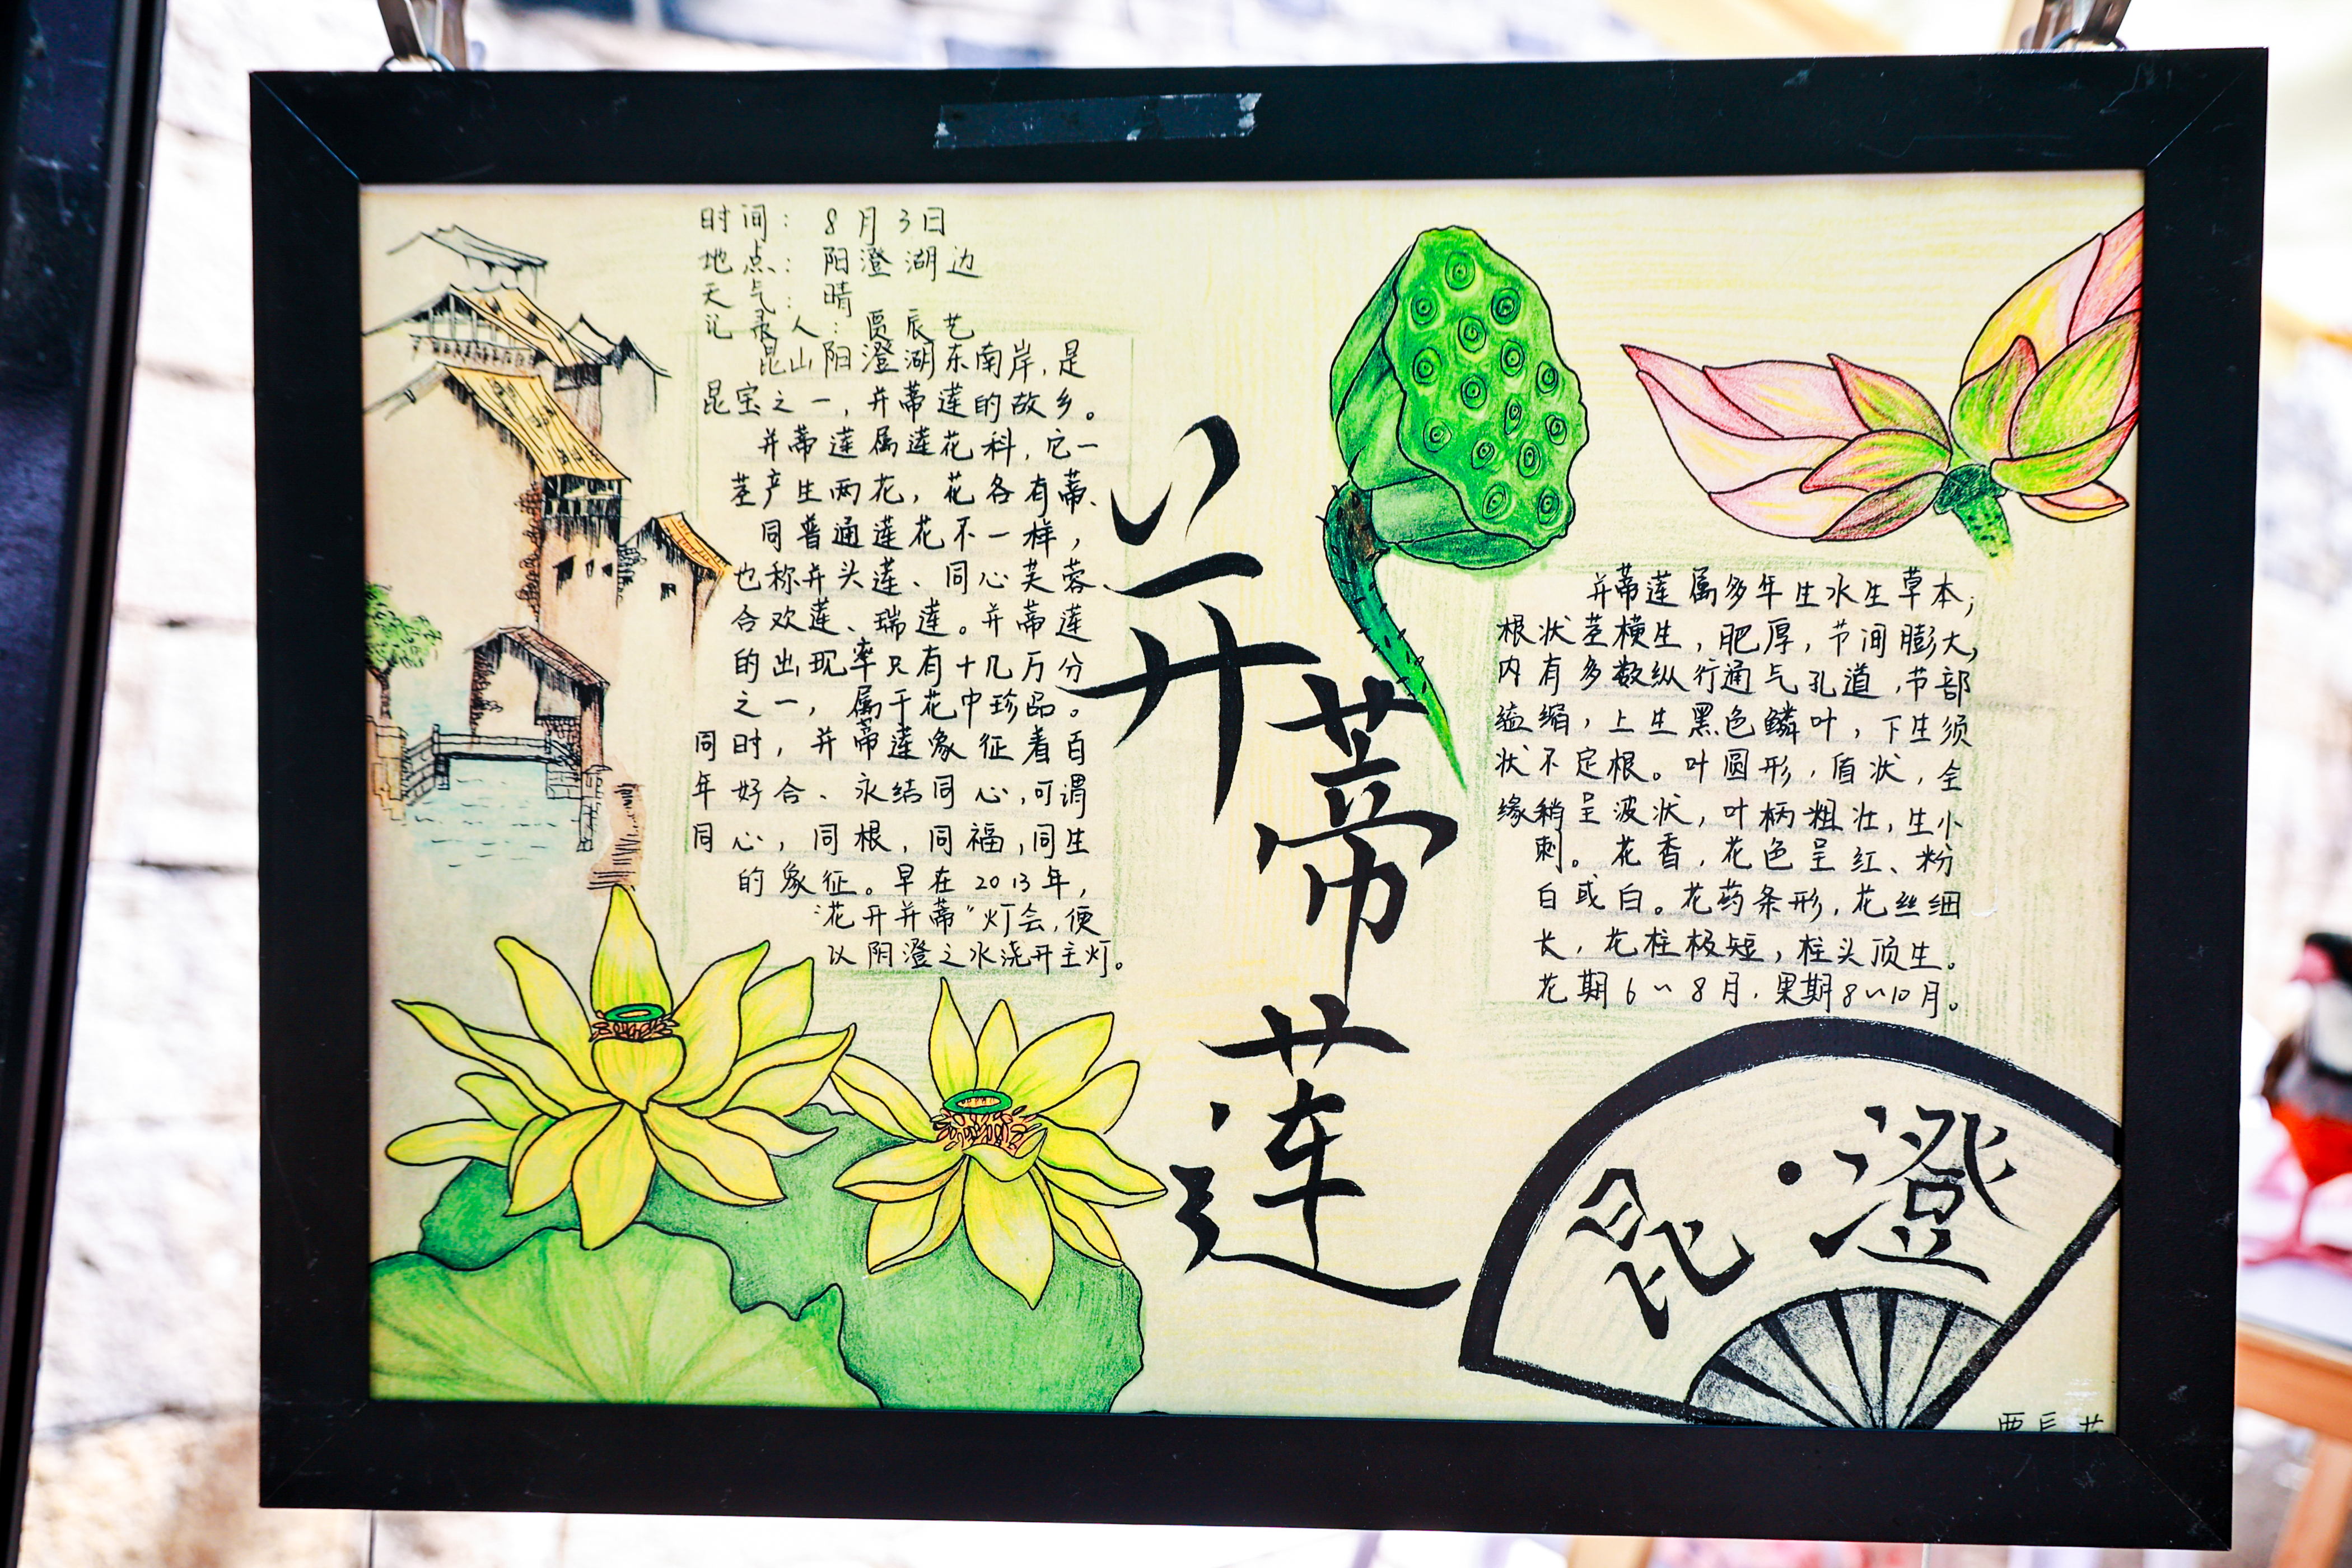 时间：8月3日
地点：阳澄湖边
天气：晴
记录人：贾辰艺
昆山阳澄湖东南岸，是
昆宝之一，并蒂莲的故乡。
并蒂莲属莲花科，它一
茎产生两花，花各有蒂、
同普通莲花不一样，
也称并头莲、同心芙蓉、
合欢莲、瑞莲。并蒂莲
的出现率只有十几万分
之一，属于花中珍品。
同时，并蒂莲象征着百
年好合、永结同心，可谓
同心，同根，同福，同生
的象征。早在2013年，
“花开并蒂”灯会，便
以阴澄之水浇开主灯。
并蒂莲
并蒂莲属多年生水生草本；
根状茎横生，肥厚，节间膨大，
内有多数纵行通气孔道，节部
缢缩，上生黑色鳞叶，下生须
状不定根。叶圆形，盾状，全
缘稍呈波状，叶柄粗壮，生小
刺。花香，花色呈红、粉
白或白。花药条形，花丝细
长，花柱极短，柱头顶生。
花期6~8月，果期8~10月。
昆·澄
贾辰艺